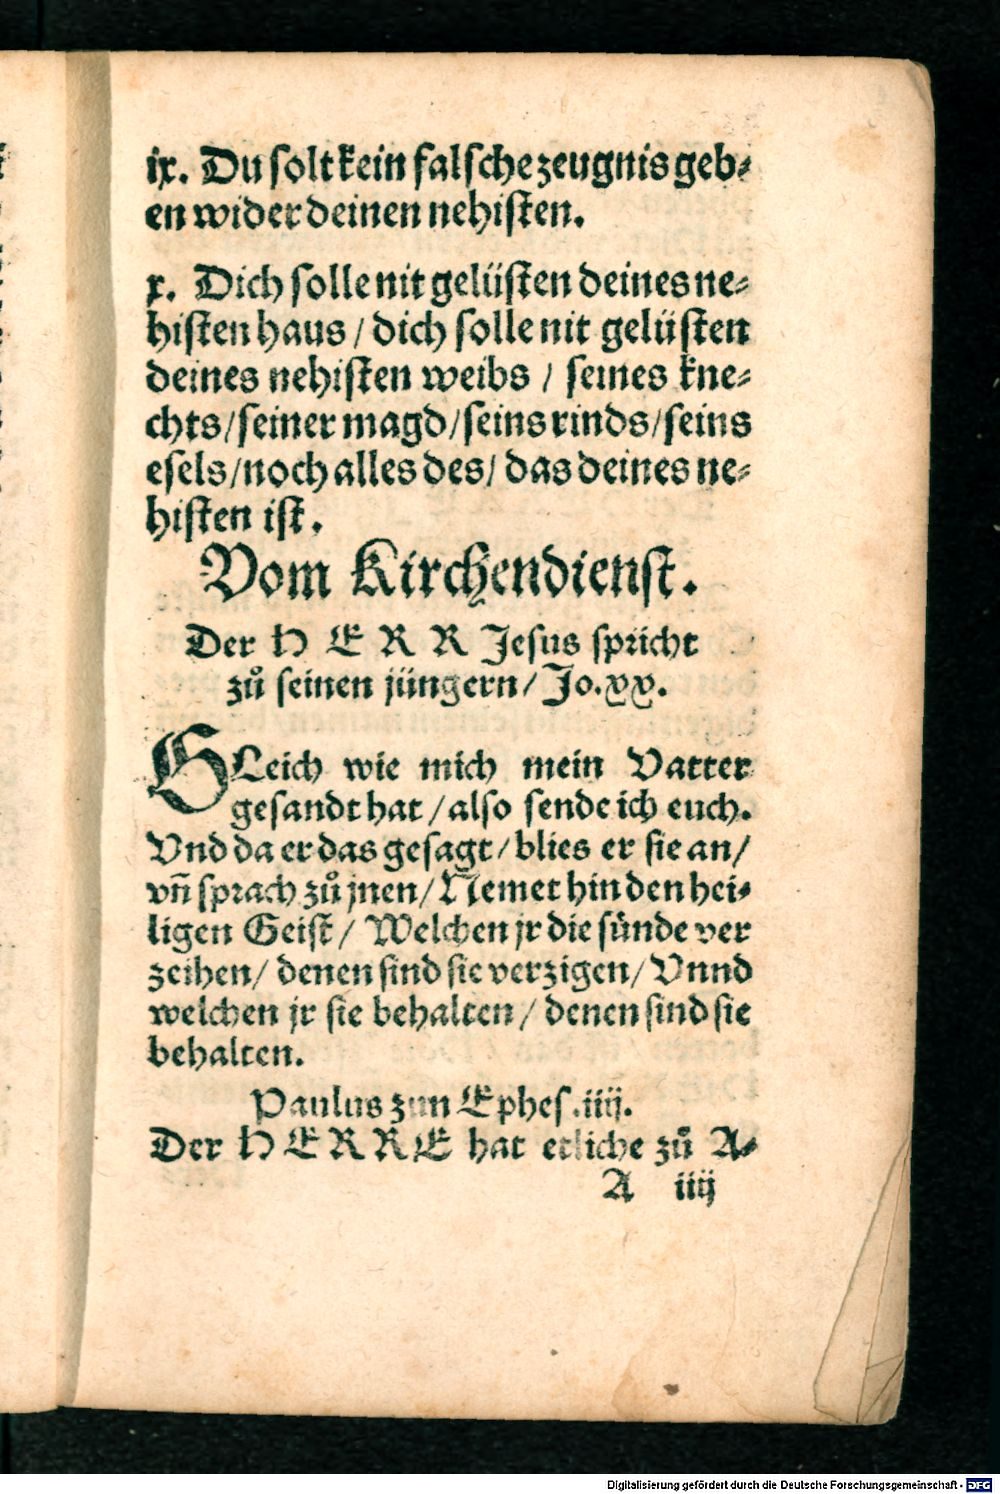 ix. Du solt kein falsche zeugnis geb-
en wider deinen nehisten.
x. Dich solle nit gelüsten deines ne-
histen haus / dich solle nit gelüsten
deines nehisten weibs / seines kne-
chts / seiner magd / seins rinds / seins
esels / noch alles des / das deines ne-
histen ist.
Vom Kirchendienst.
Der HERR Jesus spricht
zů seinen jüngern / Jo. xx.
GLeich wie mich mein Vatter
gesandt hat / also sende ich euch.
Vnd da er das gesagt / blies er sie an /
vñ sprach zů jnen / Nemet hin den hei-
ligen Geist / Welchen jr die sünde ver
zeihen / denen sind sie verzigen / Vnnd
welchen jr sie behalten / denen sind sie
behalten.
Paulus zun Ephes. iiij.
Der HERRE hat etliche zů A-
A iiij
Digitalisierung gefördert durch die Deutsche Forschungsgemeinschaft - DFG